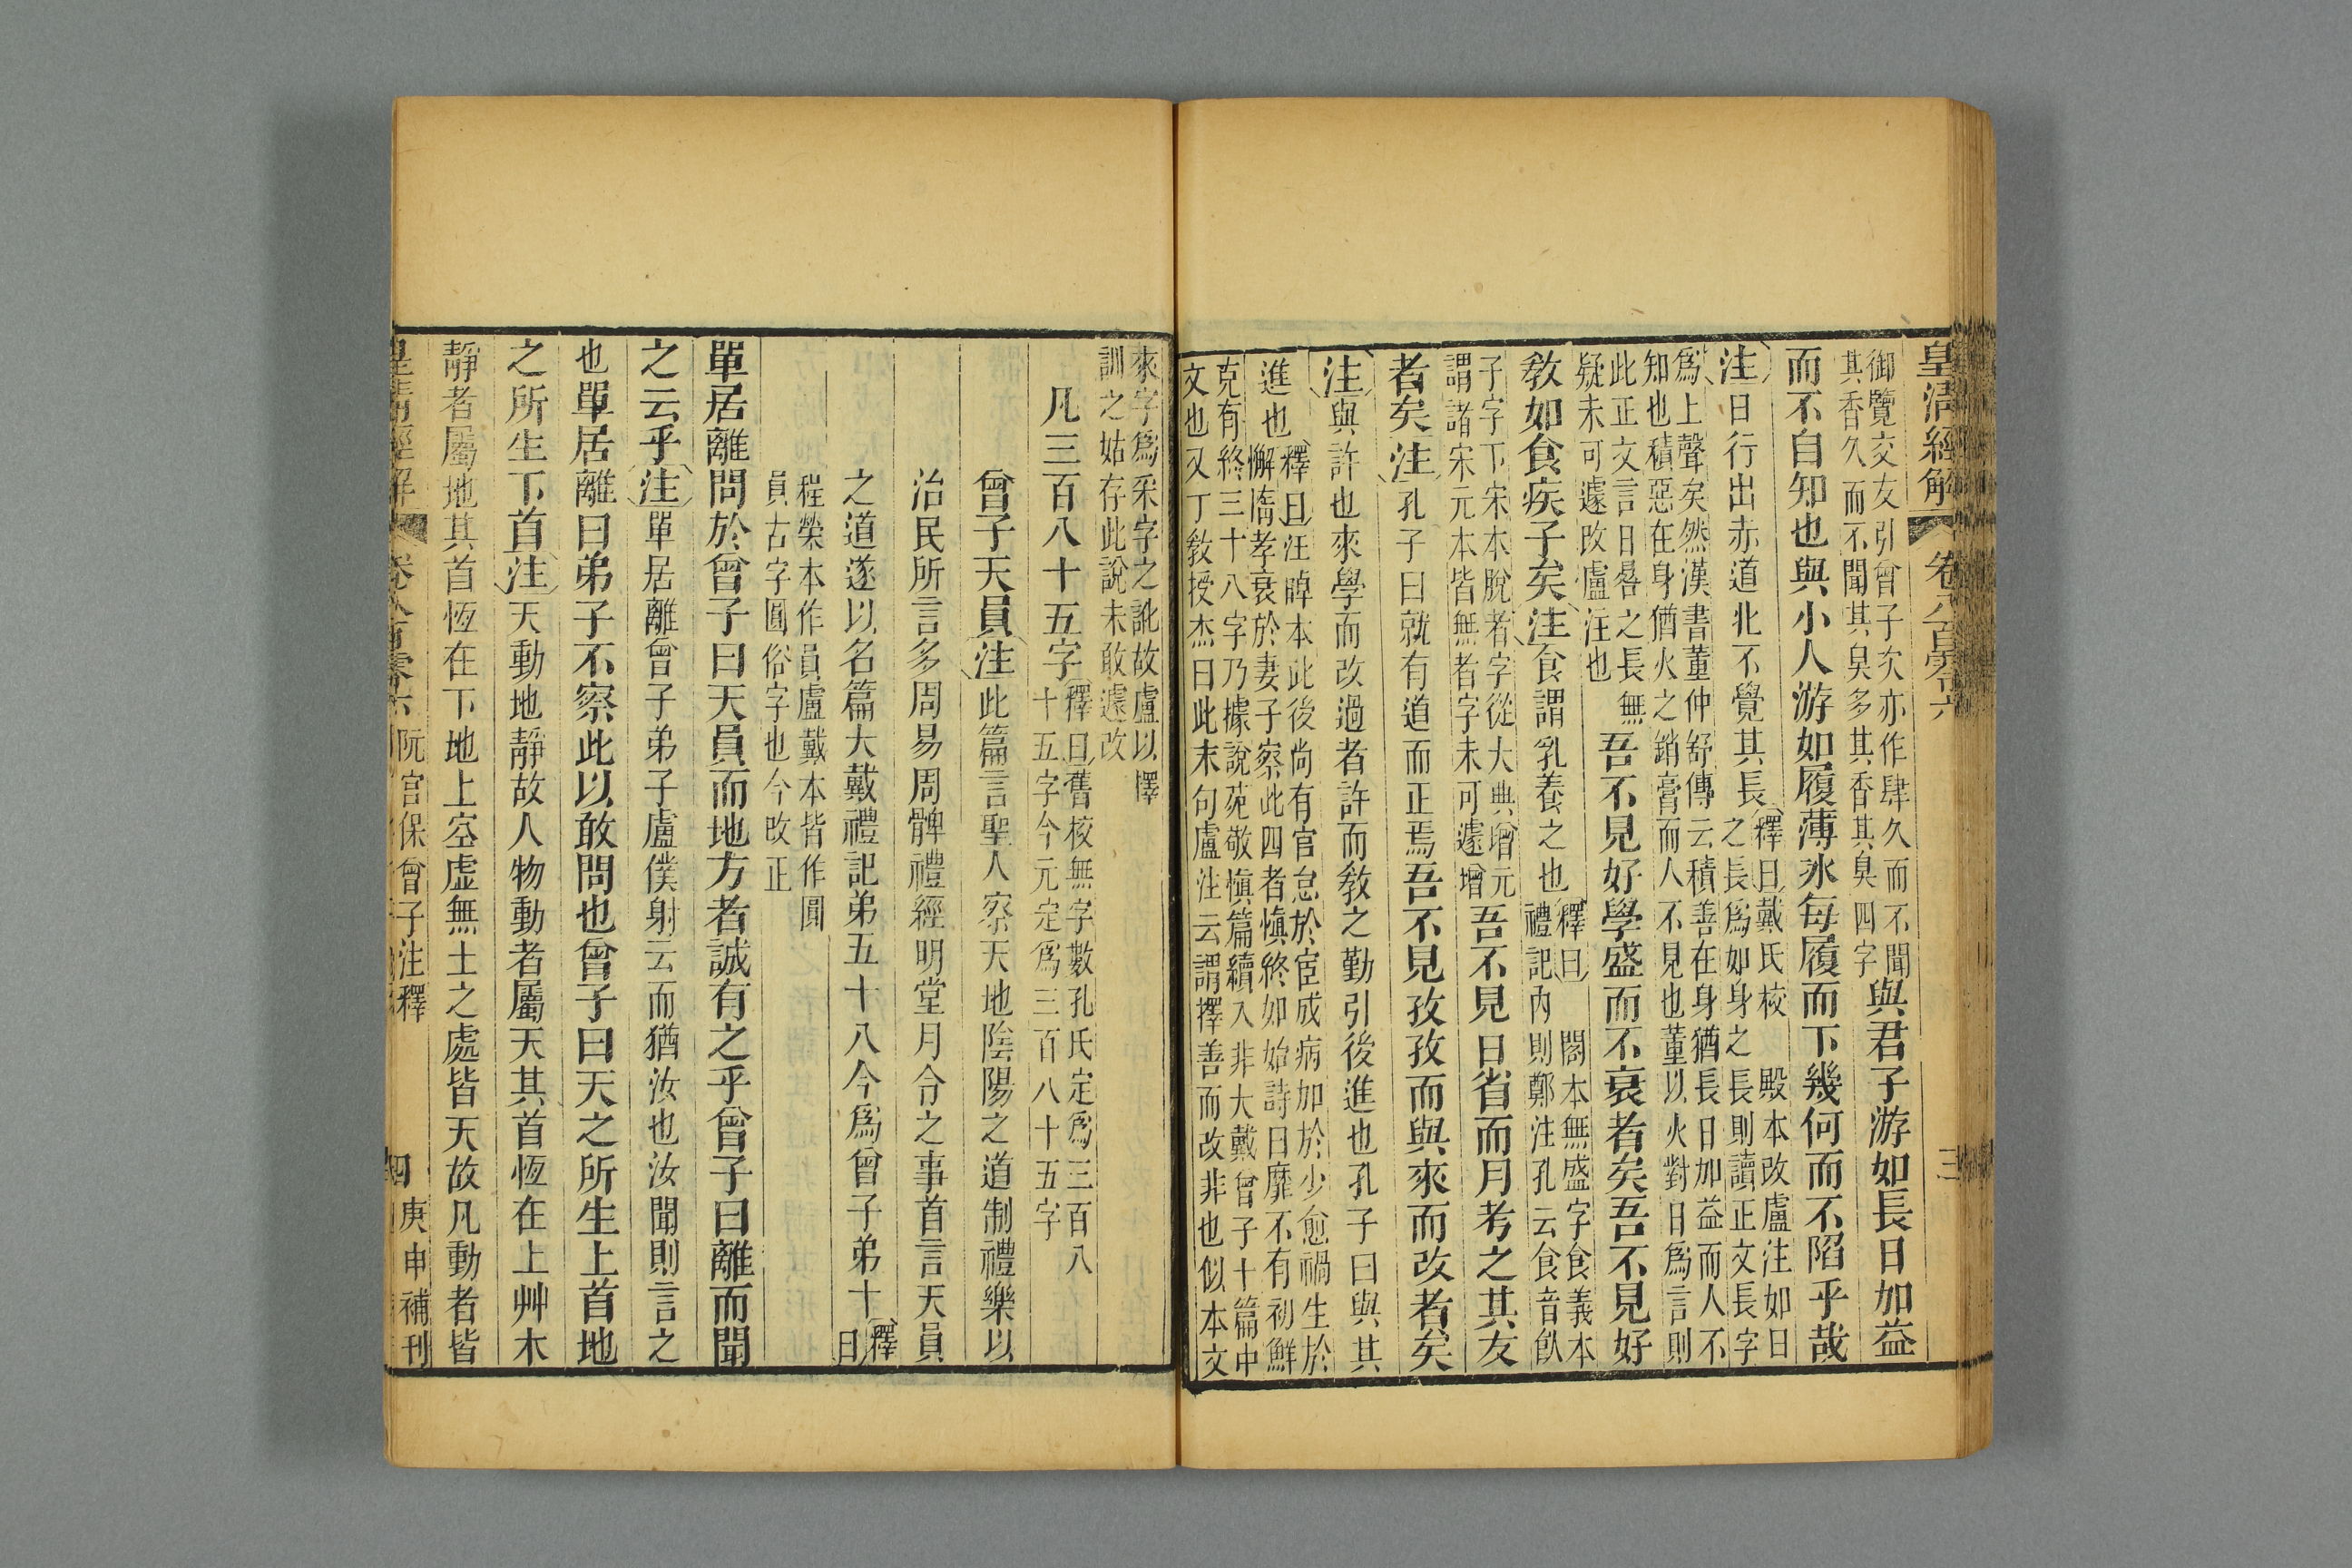 皇清經解 卷八百零六 三
御覽交友引曾子次亦作肆久而不聞
其香久而不聞其臭多其香其臭四字
與君子游如長日加益
而不自知也與小人游如履薄冰每履而下幾何而不陷乎哉
注日行出赤道北不覺其長
釋曰戴氏校 殿本改盧注如日
之長爲如身之長則讀正文長字
爲上聲矣然漢書董仲舒傳云積善在身猶長日加益而人不
知也積惡在身猶火之銷膏而人不見也董以火對日爲言則
此正文言日晷之長無
疑未可遽改盧注也
吾不見好學盛而不衰者矣吾不見好
教如食疾子矣注食謂乳養之也
釋曰 閣本無盛字食義本
禮記內則鄭注孔云食音飤
子字下宋本脫者字從大典增元
謂諸宋元本皆無者字未可遽增
吾不見日省而月考之其友
者矣注孔子曰就有道而正焉吾不見孜孜而與來而改者矣
注與許也來學而改過者許而教之勤引後進也孔子曰與其
進也
釋曰汪晫本此後尚有官怠於宦成病加於少愈禍生於
懈惰孝衰於妻子察此四者慎終如始詩曰靡不有初鮮
克有終三十八字乃據說苑敬慎篇續入非大戴曾子十篇中
文也又丁教授杰曰此末句盧注云謂擇善而改非也似本文
來字爲采字之訛故盧以擇
訓之姑存此說未敢遽改
凡三百八十五字
釋曰舊校無字數孔氏定爲三百八
十五字今元定爲三百八十五字
曾子天員注此篇言聖人察天地陰陽之道制禮樂以
治民所言多周易周髀禮經明堂月令之事首言天員
之道遂以名篇大戴禮記弟五十八今爲曾子弟十
釋
曰
程榮本作員盧戴本皆作圓
員古字圓俗字也今改正
單居離問於曾子曰天員而地方者誠有之乎曾子曰離而聞
之云乎注單居離曾子弟子盧僕射云而猶汝也汝聞則言之
也單居離曰弟子不察此以敢問也曾子曰天之所生上首地
之所生下首注天動地靜故人物動者屬天其首恆在上艸木
靜者屬地其首恆在下地上空虛無土之處皆天故凡動者皆
皇清經解 卷八百零六 阮宫保曾子注釋 四 庚申補刊